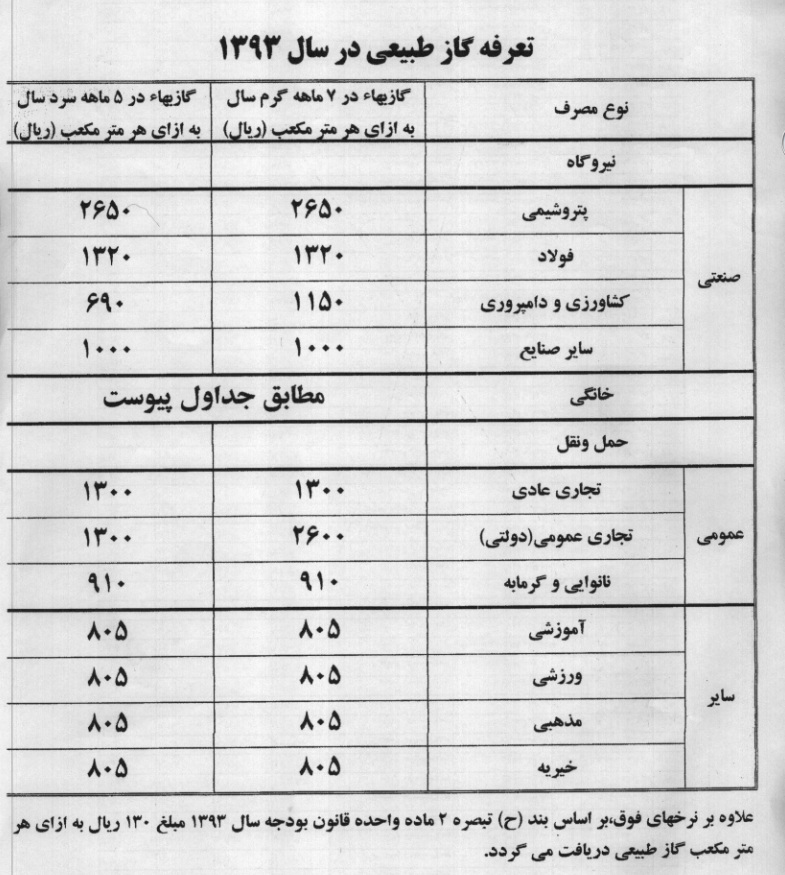 تعرفه گاز طبیعی در سال ۱۳۹۳
نوع مصرف	گازبهاء در ۷ ماهه گرم سال به ازای هر متر مکعب (ریال)	گازبهاء در ۵ ماهه سرد سال به ازای هر متر مکعب (ریال)
نیروگاه
صنعتی
پتروشیمی	۲۶۵۰	۲۶۵۰
فولاد	۱۳۲۰	۱۳۲۰
کشاورزی و دامپروری	۱۱۵۰	۶۹۰
سایر صنایع	۱۰۰۰	۱۰۰۰
خانگی	مطابق جداول پیوست
حمل ونقل
عمومی
تجاری عادی	۱۳۰۰	۱۳۰۰
تجاری عمومی(دولتی)	۲۶۰۰	۱۳۰۰
نانوایی و گرمابه	۹۱۰	۹۱۰
سایر
آموزشی	۸۰۵	۸۰۵
ورزشی	۸۰۵	۸۰۵
مذهبی	۸۰۵	۸۰۵
خیریه	۸۰۵	۸۰۵
علاوه بر نرخهای فوق،بر اساس بند (ح) تبصره ۲ ماده واحده قانون بودجه سال ۱۳۹۳ مبلغ ۱۳۰ ریال به ازای هر
متر مکعب گاز طبیعی دریافت می گردد.